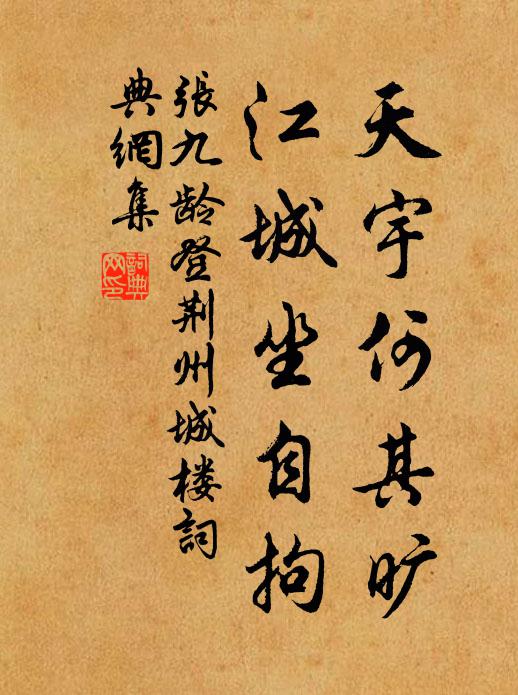 天宇何其旷
江城坐自拘
張九龄登荆州城楼詞
典網集
詞典网印